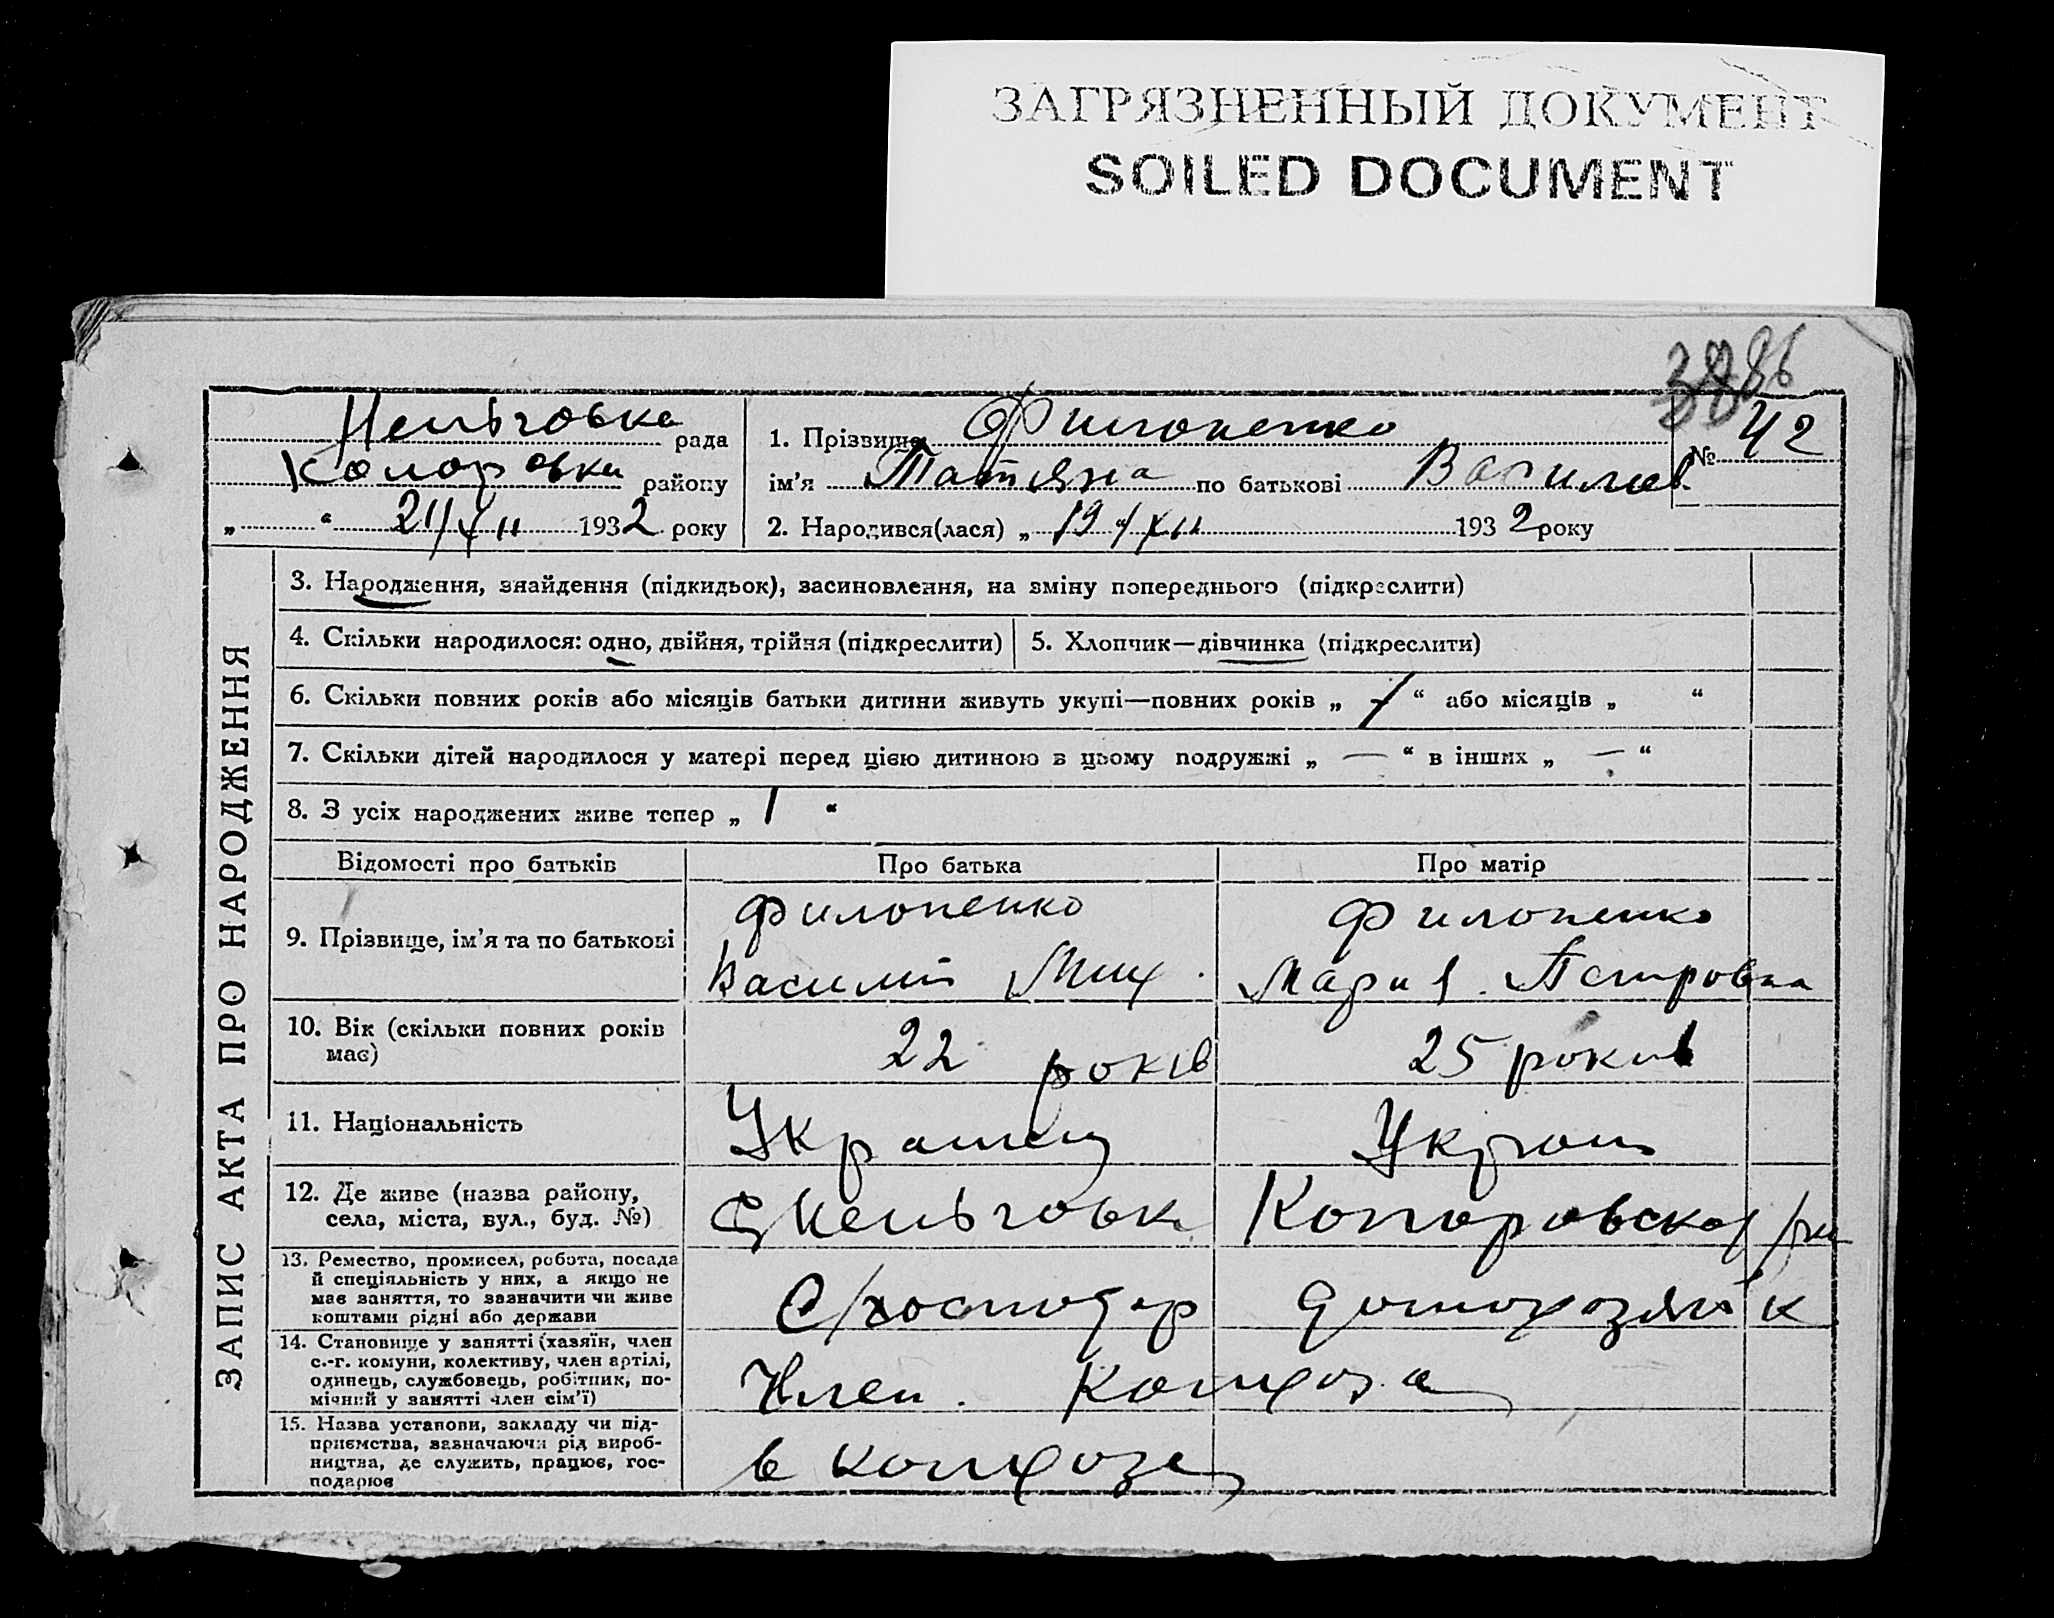 ЗАГРЯЗНЕННЫЙ ДОКУМЕНТ
SOILED DOCUMENT
Нельговка рада
району
„ “ 21/XII 1932 року
1. Прізвище Филоненко
ім’я Татяна по батькові Василев.
№ 42
2. Народився(лася) „ 19 “ XII 1932 року
ЗАПИС АКТА ПРО НАРОДЖЕННЯ
3. Народження, знайдення (підкидьок), засиновлення, на зміну попереднього (підкреслити)
4. Скільки народилося: одно, двійня, трійня (підкреслити) 5. Хлопчик—дівчинка (підкреслити)
6. Скільки повних років або місяців батьки дитини живуть укупі—повних років „ 1 “ або місяців „ “
7. Скільки дітей народилося у матері перед цією дитиною в цьому подружжі „ — “ в інших „ — “
8. З усіх народжених живе тепер „ 1 “
Відомості про батьків Про батька Про матір
9. Прізвище, ім’я та по батькові
Филоненко Филоненко
Василий Мих. Мария Петровна
10. Вік (скільки повних років
має)
22 років 25 років
11. Національність
Украинец Украин
12. Де живе (назва району,
села, міста, вул., буд. №)
с Нельговка
13. Ремество, промисел, робота, посада
й спеціяльність у них, а якщо не
має заняття, то зазначити чи живе
коштами рідні або держави
С/господар домохозяйк
14. Становище у занятті (хазяїн, член
с.-г. комуни, колективу, член артілі,
одинець, службовець, робітник, по-
мічний у занятті член сім’ї)
Член Колхоза
15. Назва установи, закладу чи під-
приємства, зазначаючи рід вироб-
ництва, де служить, працює, гос-
подарює
в колхозе